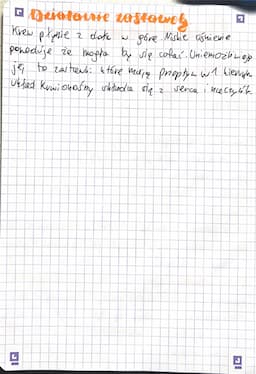 Działanie zastawek
Krew płynie z dołu w górę. Niskie ciśnienie
powoduje że mogła by się cofać. Uniemożliwiają
jej to zastawki które mają przepływ w 1 kierunk
Układ Krwionośny składa się z serca i naczyń k